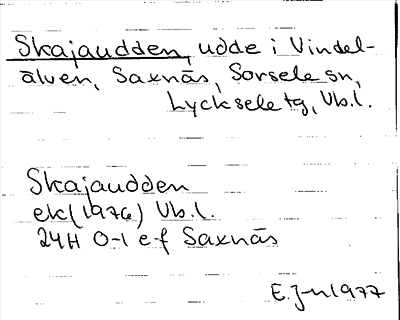 Skajaudden, udde i Vindel-
älven, Saxnäs, Sorsele sn,
Lycksele tg, Vb.l.
Skajaudden
ek(1976) Vb.l.
24H 0-1 e-f Saxnäs
E.J-n 1977